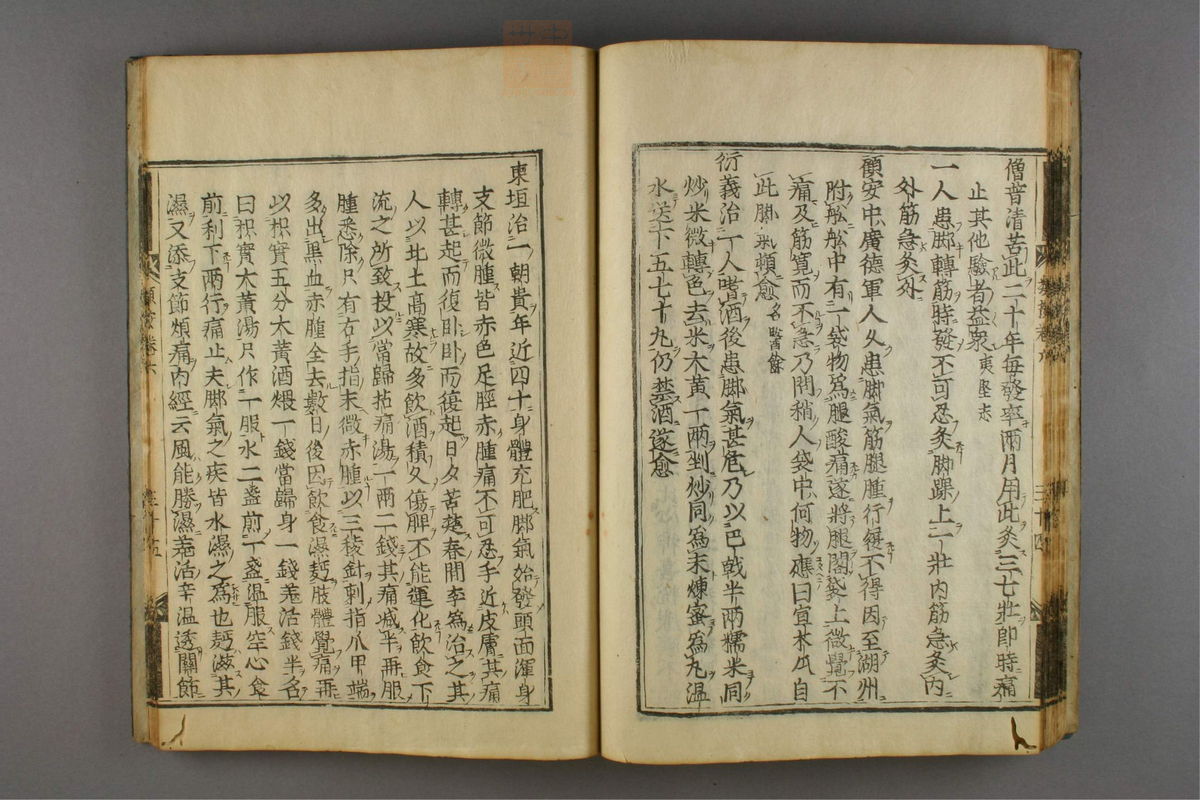 僧普清苦此二十年每發率兩月用此灸三七壯即時痛
止其他驗者益衆夷堅志
一人患脚轉筋時發不可忍灸脚踝上一壯内筋急灸内
外筋急灸外
顧安中廣德軍人久患脚氣筋腿腫行履不得因至湖州
附舩舩中有一袋物爲腿酸痛遂將腿閣袋上微覺不
痛及筋寛而不急乃問稍人袋中何物應曰宜木瓜自
此脚氣頓愈名醫餘
衍義治一人嗜酒後患脚氣甚危乃以巴戟半兩糯米同
炒米微轉色去米大黄一兩剉炒同爲末煉蜜爲丸温
水送下五七十丸仍禁酒遂愈
東垣治一朝貴年近四十身體充肥脚氣始發頭面渾身
支節微腫皆赤色足脛赤腫痛不可忍手近皮膚其痛
轉甚起而復卧卧而復起日夕苦楚春間李爲治之其
人以北土高寒故多飲酒積久傷脾不能運化飲食下
流之所致投以當歸拈痛湯一兩二錢其痛减半再服
腫悉除只有右手指末微赤腫以三稜針刺指爪甲端
多出黒血赤腫全去數日後因飲食濕麪肢體覺痛再
以枳實五分大黄酒煨一錢當歸身一錢羗活錢半名
曰枳實大黄湯只作一服水二盞煎一盞温服空心食
前利下兩行痛止夫脚氣之疾皆水濕之爲也麪滋其
濕又添支節煩痛内經云風能勝濕羗活辛温透關節